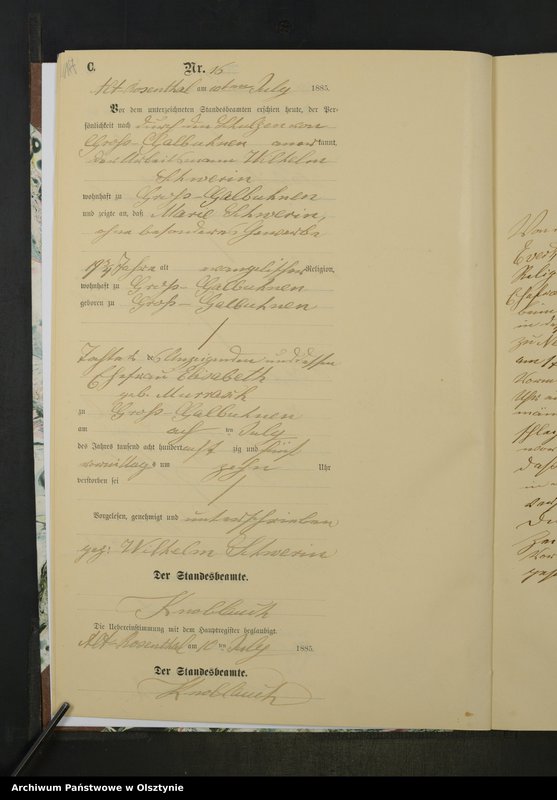 C.
Nr. 16
Alt Rosenthal am 10ten July 1885.
Vor dem unterzeichneten Standesbeamten erschien heute, der Per-
sönlichkeit nach durch den Schulzen von
Gross-Galbuhnen anerkannt,
der Arbeitsmann Wilhelm
Schwerin
wohnhaft zu Gross-Galbuhnen
und zeigte an, daß Marie Schwerin,
ohne besonderes Gewerbe
19 Jahre alt evangelischer Religion,
wohnhaft zu Gross-Galbuhnen
geboren zu Gross-Galbuhnen
Tochter des Anzeigenden und dessen
Ehefrau Elisabeth
geb.
zu Gross-Galbuhnen
am ten July
des Jahres tausend acht hundert acht zig und fünf
vormittags um zehn Uhr
verstorben sei
Vorgelesen, genehmigt und unterschrieben
gez: Wilhelm Schwerin
Der Standesbeamte.
Knoblauch
Die Uebereinstimmung mit dem Hauptregister beglaubigt.
Alt Rosenthal am 10 ten July 1885.
Der Standesbeamte.
Knoblauch
Archiwum Państwowe w Olsztynie